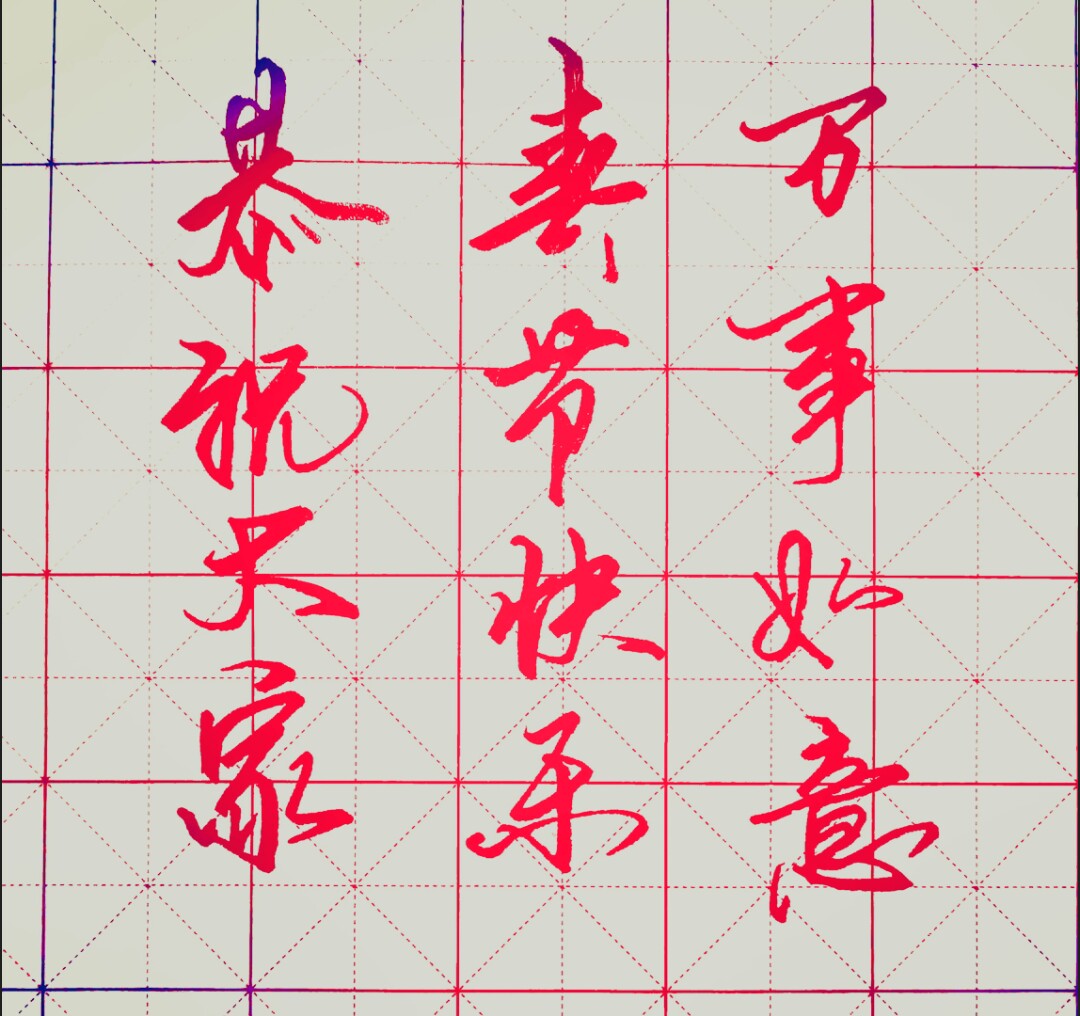 恭祝大家
春节快乐
万事如意